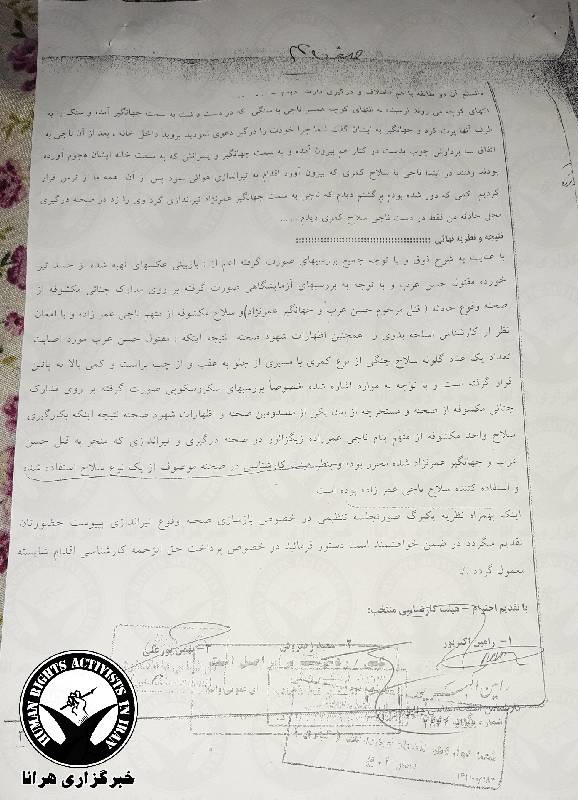 صفحه ۴
انتهای کوچه می روند نرسیده به انتهای کوچه همسر ناجی با سنگی که در دست داشت به سمت جهانگیر آمده و سنگ را به
طرف آنها پرت کرد و جهانگیر به ایشان گفت شما چرا خودت را درگیر دعوی نمودید بروید داخل خانه ، بعد از آن ناجی به
اتفاق چوب بدست در کنار هم بیرون آمده و به سمت جهانگیر و پسرانش که به سمت خانه ایشان هجوم آورده
بودند رفتند در اینجا ناجی با سلاح کمری که بیرون آورد اقدام به تیراندازی هوائی نمود پس از آن همه ما از ترس فرار
کردیم کمی که دور شده بودم برگشتم دیدم که ناجی به سمت جهانگیر عمرنژاد تیراندازی کرد وی را زد در صحنه درگیری
محل حادثه من فقط در دست ناجی سلاح کمری دیدم......
نتیجه و نظریه نهائی
با عنایت به شرح فوق و با توجه جمیع بررسیهای صورت گرفته اعم از : بازبینی عکسهای تهیه شده از جسد تیر
خورده مقتول حسن عرب و با توجه به بررسیهای آزمایشگاهی صورت گرفته بر روی مدارک جنائی مکشوفه از
صحنه وقوع حادثه ( قتل مرحوم حسن عرب و جهانگیر عمرنژاد) و سلاح مکشوفه از متهم ناجی عمر زاده و با امعان
نظر از کارشناس اسلحه بدوی و همچنین اظهارات شهود صحنه نتیجه اینکه : مقتول حسن عرب مورد اصابت
تعداد یک عدد گلوله سلاح جنگی از نوع کمری با مسیری از جلو به عقب و از چپ براست و کمی بالا به پائین
قرار گرفته است و با توجه به موارد اشاره شده خصوصاً بررسیهای میکروسکوپی صورت گرفته بر روی مدارک
جنائی مکشوفه از صحنه و مستخرجه از بدن یکی از مصدومین صحنه و اظهارات شهود صحنه نتیجه اینکه بکارگیری
سلاح واحد مکشوفه از متهم بنام ناجی عمرزاده در صحنه درگیری و تیراندازی که منجر به قتل حسن
عرب و جهانگیر عمرنژاد شده محرز بوده و بنظر هیئت کارشناسی در صحنه موصوف از یک نوع سلاح استفاده شده
و استفاده کننده سلاح ناجی عمر زاده بوده است
اینک بهمراه نظریه یکبرگ صورتجلسه تنظیمی در خصوص بازسازی صحنه وقوع تیراندازی بپیوست حضورتان
تقدیم میگردد در ضمن خواهشمند است دستور فرمائید در خصوص پرداخت حق الزحمه کارشناسی اقدام شایسته
معمول گردد
با تقدیم احترام – هیئت کارشناسی منتخب:
۱- رامین اکبرپور
۲- محمد
۳- بهمن پورعلی
برابر اصل است
HUMAN RIGHTS ACTIVISTS IN IRAN
خبرگزاری هرانا